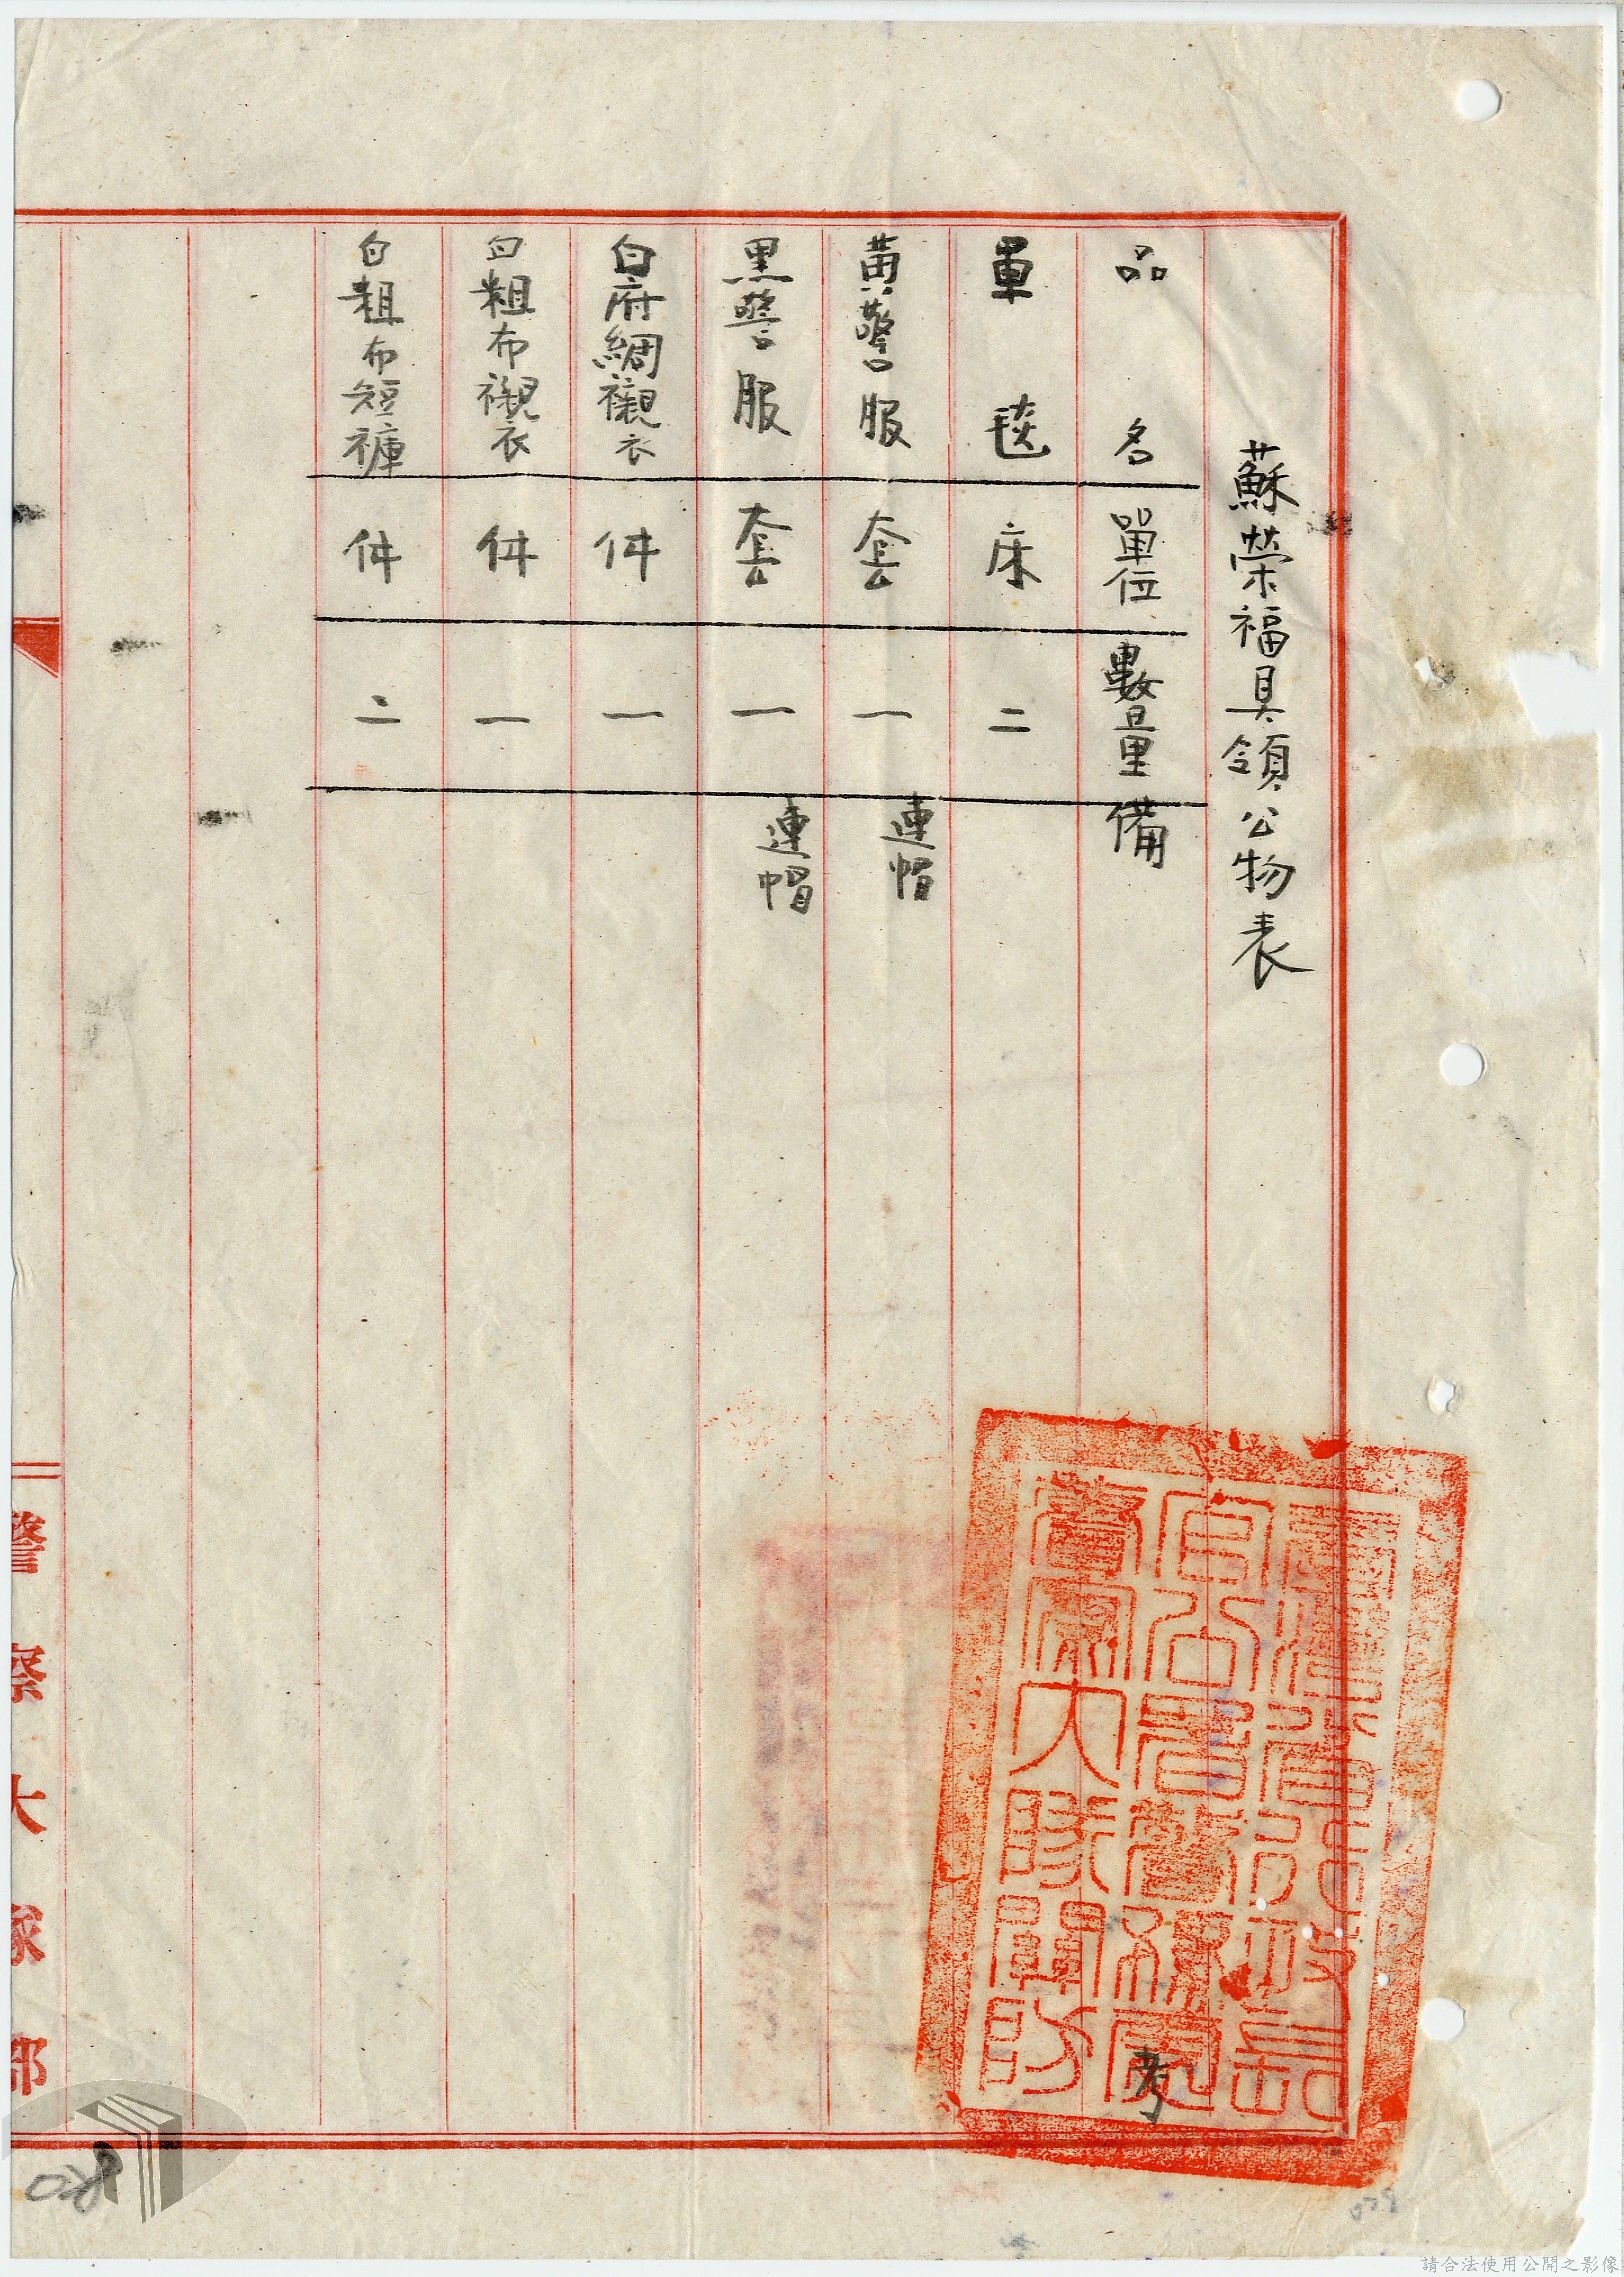 蘇榮福具領公物表
品名 單位 數量 備考
軍毯 床 二
黃警服 套 一 連帽
黑警服 套 一 連帽
白府綢襯衣 件 一
白粗布襯衣 件 一
白粗布短褲 件 二
臺灣省行政長
官公署警察處
警察大隊關防
警察大隊部
028
請合法使用公開之影像